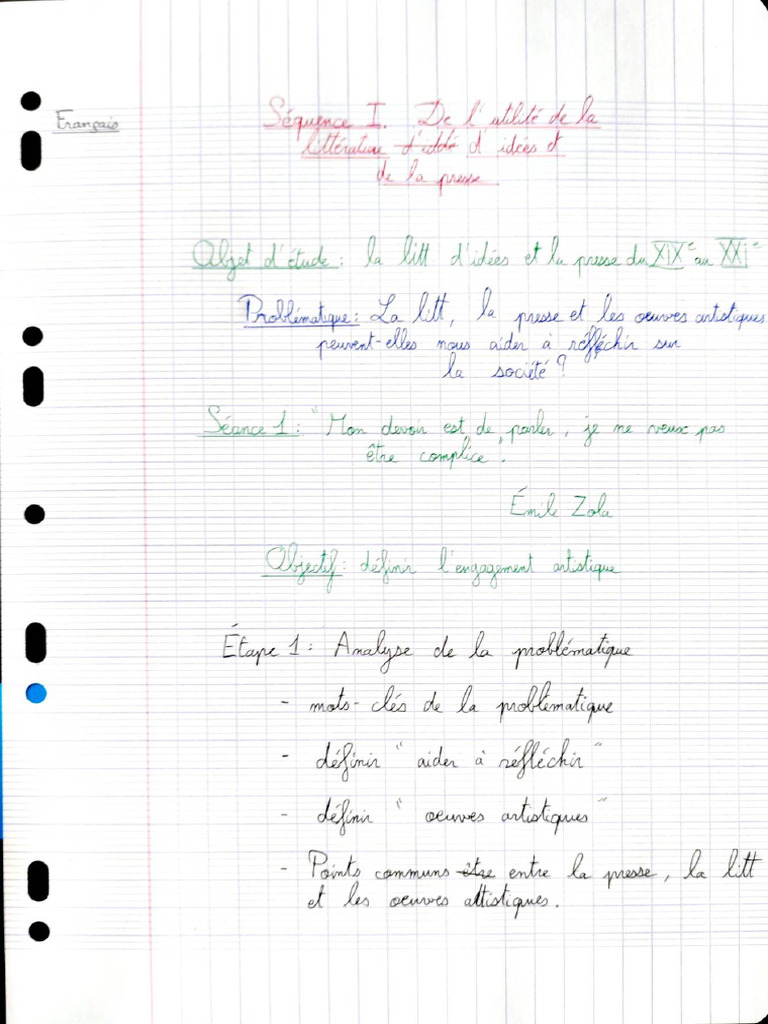 Français
Séquence I. De l'utilité de la
littérature d'idées et
de la presse
Objet d'étude : la litt d'idées et la presse du XIXe au XXIe
Problématique : La litt, la presse et les oeuvres artistiques
peuvent-elles nous aider à réfléchir sur
la société ?
Séance 1 : "Mon devoir est de parler, je ne veux pas
être complice".
Émile Zola
Objectif : définir l'engagement artistique
Étape 1 : Analyse de la problématique
- mots-clés de la problématique
- définir "aider à réfléchir"
- définir "oeuvres artistiques"
- Points communs être entre la presse, la litt
et les oeuvres attistiques.